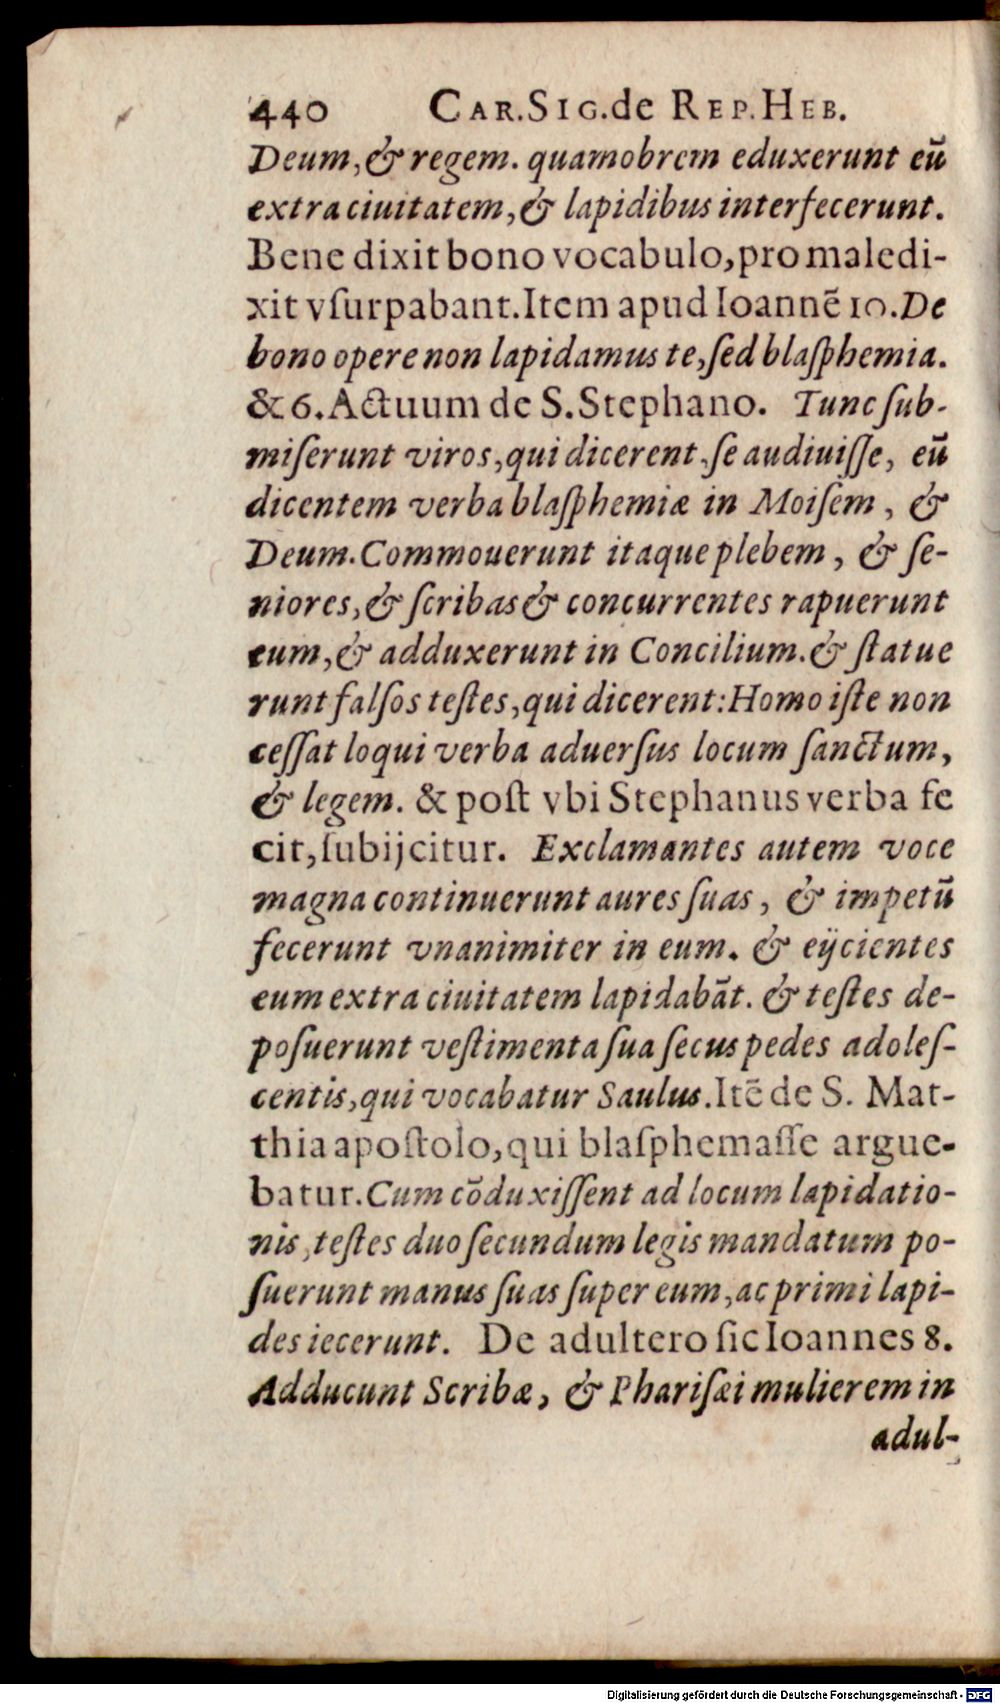 440 CAR.SIG.de REP.HEB.
Deum, & regem. quamobrem eduxerunt eū
extra ciuitatem, & lapidibus interfecerunt.
Bene dixit bono vocabulo, pro maledi-
xit vſurpabant. Item apud Ioannē 10. De
bono opere non lapidamus te, ſed blaſphemia.
& 6. Actuum de S. Stephano. Tunc ſub-
miſerunt viros, qui dicerent, ſe audiuiſſe, eū
dicentem verba blaſphemiæ in Moiſem, &
Deum. Commouerunt itaque plebem, & ſe-
niores, & ſcribas & concurrentes rapuerunt
eum, & adduxerunt in Concilium. & ſtatue
runt falſos teſtes, qui dicerent: Homo iſte non
ceſſat loqui verba aduerſus locum ſanctum,
& legem. & poſt vbi Stephanus verba fe
cit, ſubijcitur. Exclamantes autem voce
magna continuerunt aures ſuas, & impetū
fecerunt vnanimiter in eum. & eijcientes
eum extra ciuitatem lapidabāt. & teſtes de-
poſuerunt veſtimenta ſua ſecus pedes adoleſ-
centis, qui vocabatur Saulus. Itē de S. Mat-
thia apoſtolo, qui blaſphemaſſe argue-
batur. Cum cōduxiſſent ad locum lapidatio-
nis, teſtes duo ſecundum legis mandatum po-
ſuerunt manus ſuas ſuper eum, ac primi lapi-
des iecerunt. De adultero ſic Ioannes 8.
Adducunt Scribæ, & Phariſæi mulierem in
adul-
Digitalisierung gefördert durch die Deutsche Forschungsgemeinschaft - DFG